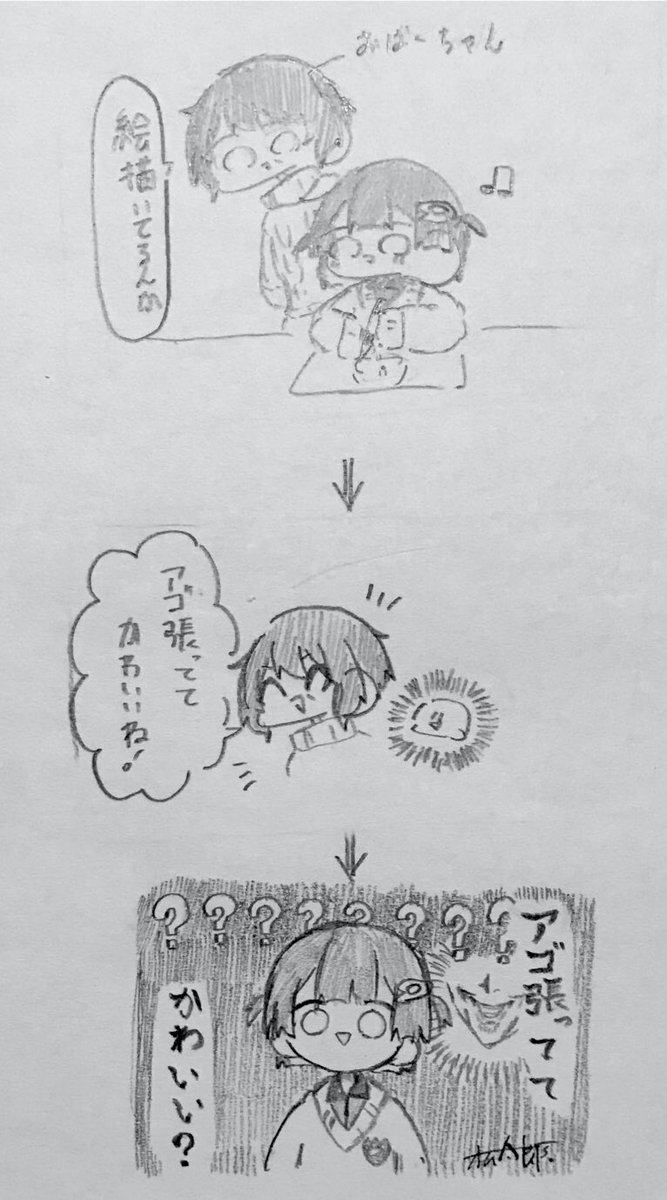 おばーちゃん
絵描いてるんか
アゴ張ってて
かわいいね!
? ? ? ? ? ? ? ?
アゴ張ってて
かわいい?